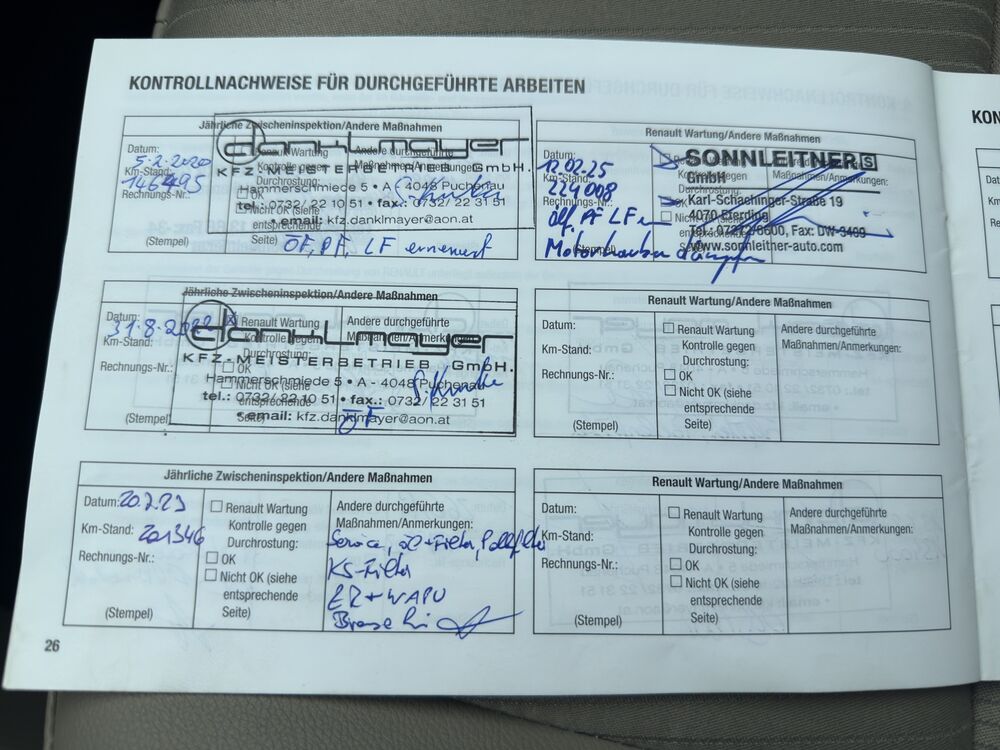 KONTROLLNACHWEISE FÜR DURCHGEFÜHRTE ARBEITEN
Jährliche Zwischeninspektion/Andere Maßnahmen
Datum: 5.2.2020
Km-Stand: 146495
Rechnungs-Nr.:
(Stempel)
Renault Wartung
Kontrolle gegen
Durchrostung:
OK
Nicht OK (siehe
entsprechende
Seite)
Andere durchgeführte
Maßnahmen/Anmerkungen:
danklmayer
KFZ-MEISTERBETRIEB GmbH.
Hammerschmiede 5 • A - 4048 Puchenau
tel.: 0732/ 22 10 51 • fax.: 0732/ 22 31 51
• email: kfz.danklmayer@aon.at
ÖF, PF, LF erneuert
Renault Wartung/Andere Maßnahmen
Datum: 12.02.25
Km-Stand: 224008
Rechnungs-Nr.:
(Stempel)
Kontrolle gegen
Durchrostung:
OK
Nicht OK (siehe
entsprechende
Seite)
Maßnahmen/Anmerkungen:
SONNLEITNER S
GmbH
Karl-Schachinger-Straße 19
4070 Eferding
Tel. 07272/8600, Fax: DW-3499
www.sonnleitner-auto.com
PF LF
Motorhauben
Jährliche Zwischeninspektion/Andere Maßnahmen
Datum: 31.8.
Km-Stand:
Rechnungs-Nr.:
(Stempel)
X Renault Wartung
Kontrolle gegen
Durchrostung:
OK
Nicht OK (siehe
entsprechende
Seite)
Andere durchgeführte
Maßnahmen/Anmerkungen:
danklmayer
KFZ-MEISTERBETRIEB GmbH.
Hammerschmiede 5 • A - 4048 Puchenau
tel.: 0732/ 22 10 51 • fax.: 0732/ 22 31 51
• email: kfz.danklmayer@aon.at
Renault Wartung/Andere Maßnahmen
Datum:
Km-Stand:
Rechnungs-Nr.:
(Stempel)
Renault Wartung
Kontrolle gegen
Durchrostung:
OK
Nicht OK (siehe
entsprechende
Seite)
Andere durchgeführte
Maßnahmen/Anmerkungen:
Jährliche Zwischeninspektion/Andere Maßnahmen
Datum: 20.7.23
Km-Stand: 201346
Rechnungs-Nr.:
(Stempel)
Renault Wartung
Kontrolle gegen
Durchrostung:
OK
Nicht OK (siehe
entsprechende
Seite)
Andere durchgeführte
Maßnahmen/Anmerkungen:
Service, Öl+Filter, Pollefilter
KS-Filter
ZR+WAPU
Renault Wartung/Andere Maßnahmen
Datum:
Km-Stand:
Rechnungs-Nr.:
(Stempel)
Renault Wartung
Kontrolle gegen
Durchrostung:
OK
Nicht OK (siehe
entsprechende
Seite)
Andere durchgeführte
Maßnahmen/Anmerkungen:
26
KON